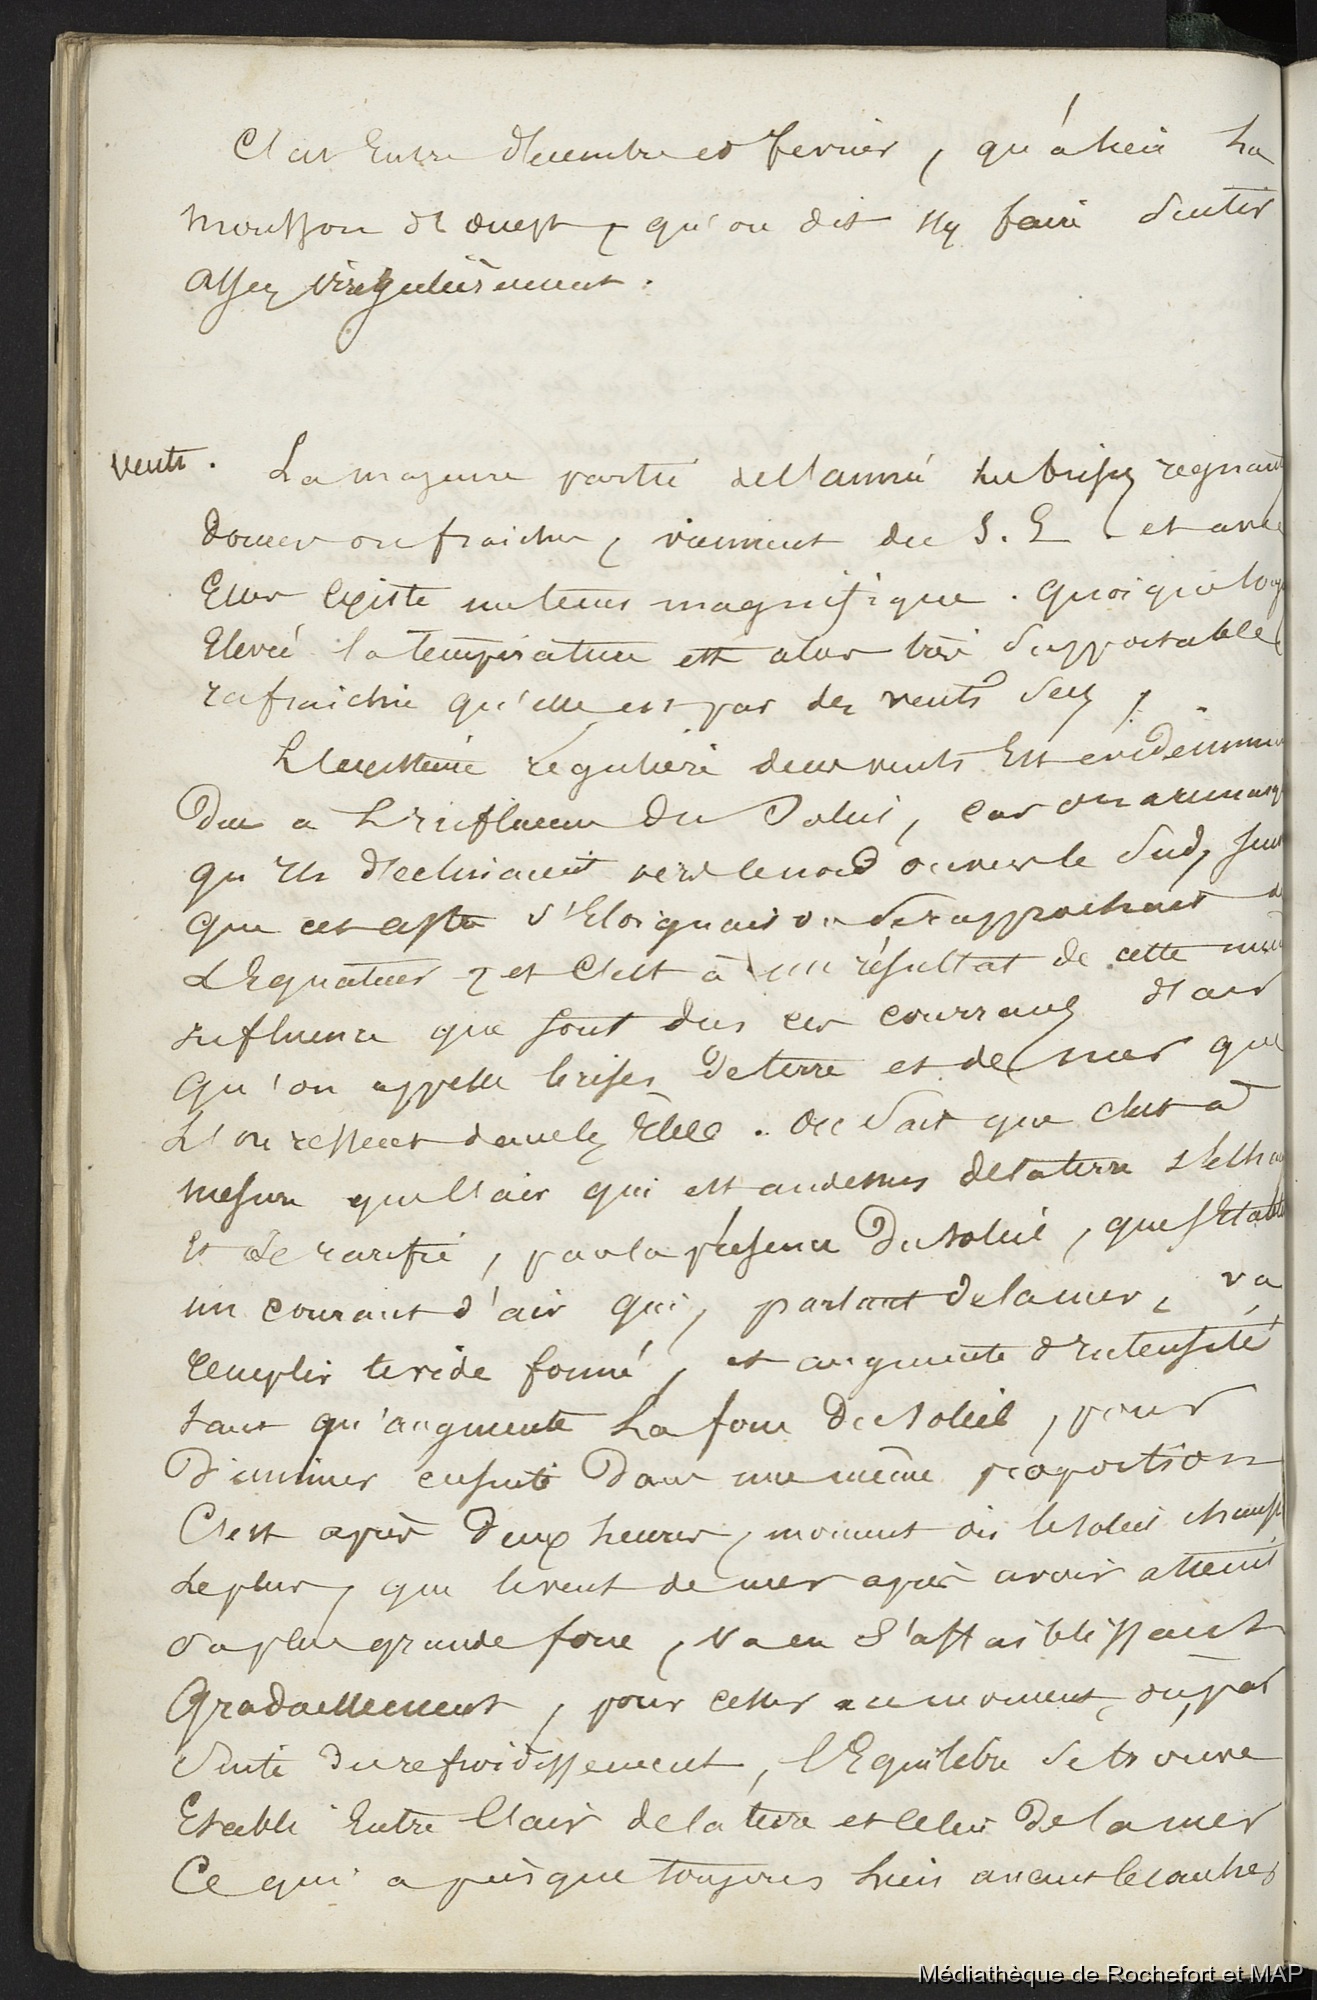 C'est Entre décembre et fevrier, qu'a lieu La
mousson de ouest, qu'on dit s'y faire sentir
assez irrégulièrement.
vents. La majeure partie de l'année les brises regnant
douces ou fraiches, viennent du S. E. et avec
Elles Existe un tems magnifique. quoique
Elevée la température est alors très supportable
rafraichie qu'elle est par des vents secs,
régulière de ces vents Est evidemment
Due a L'influence Du Soleil, car on a remarqué
qu'ils déclinaient vers le nord ou vers le Sud,
que cet astre s'Eloignait ou se rapprochait de
L'Equateur, et C'est à un résultat de cette même
influence que sont dus ces courrants d'air
qu'on appelle brises De terre et de mer que
L'on ressent dans les . On sait que c'est à
mesure que l'air qui est au dessus de la terre s'échauffe
Et se rarifie, par la présence Du soleil, que s'Etablit
un courant d'air qui, partant de la mer, va
remplir le vide formé, et augmente d'intensité
tant qu'augmente La force Du soleil, pour
Diminuer ensuite Dans une même proportion
C'est après Deux heures, moment où le soleil chauffe
Le plus, que le vent de mer après avoir atteint
sa plus grande force, va en s'affaiblissant
Graduellement, pour cesser au moment, où, par
suite Du refroidissement, l'Equilibre se trouve
Etabli Entre l'air de la terre et celui De la mer
Ce qui a presque toujours lieu avant le coucher
Médiathèque de Rochefort et MAP